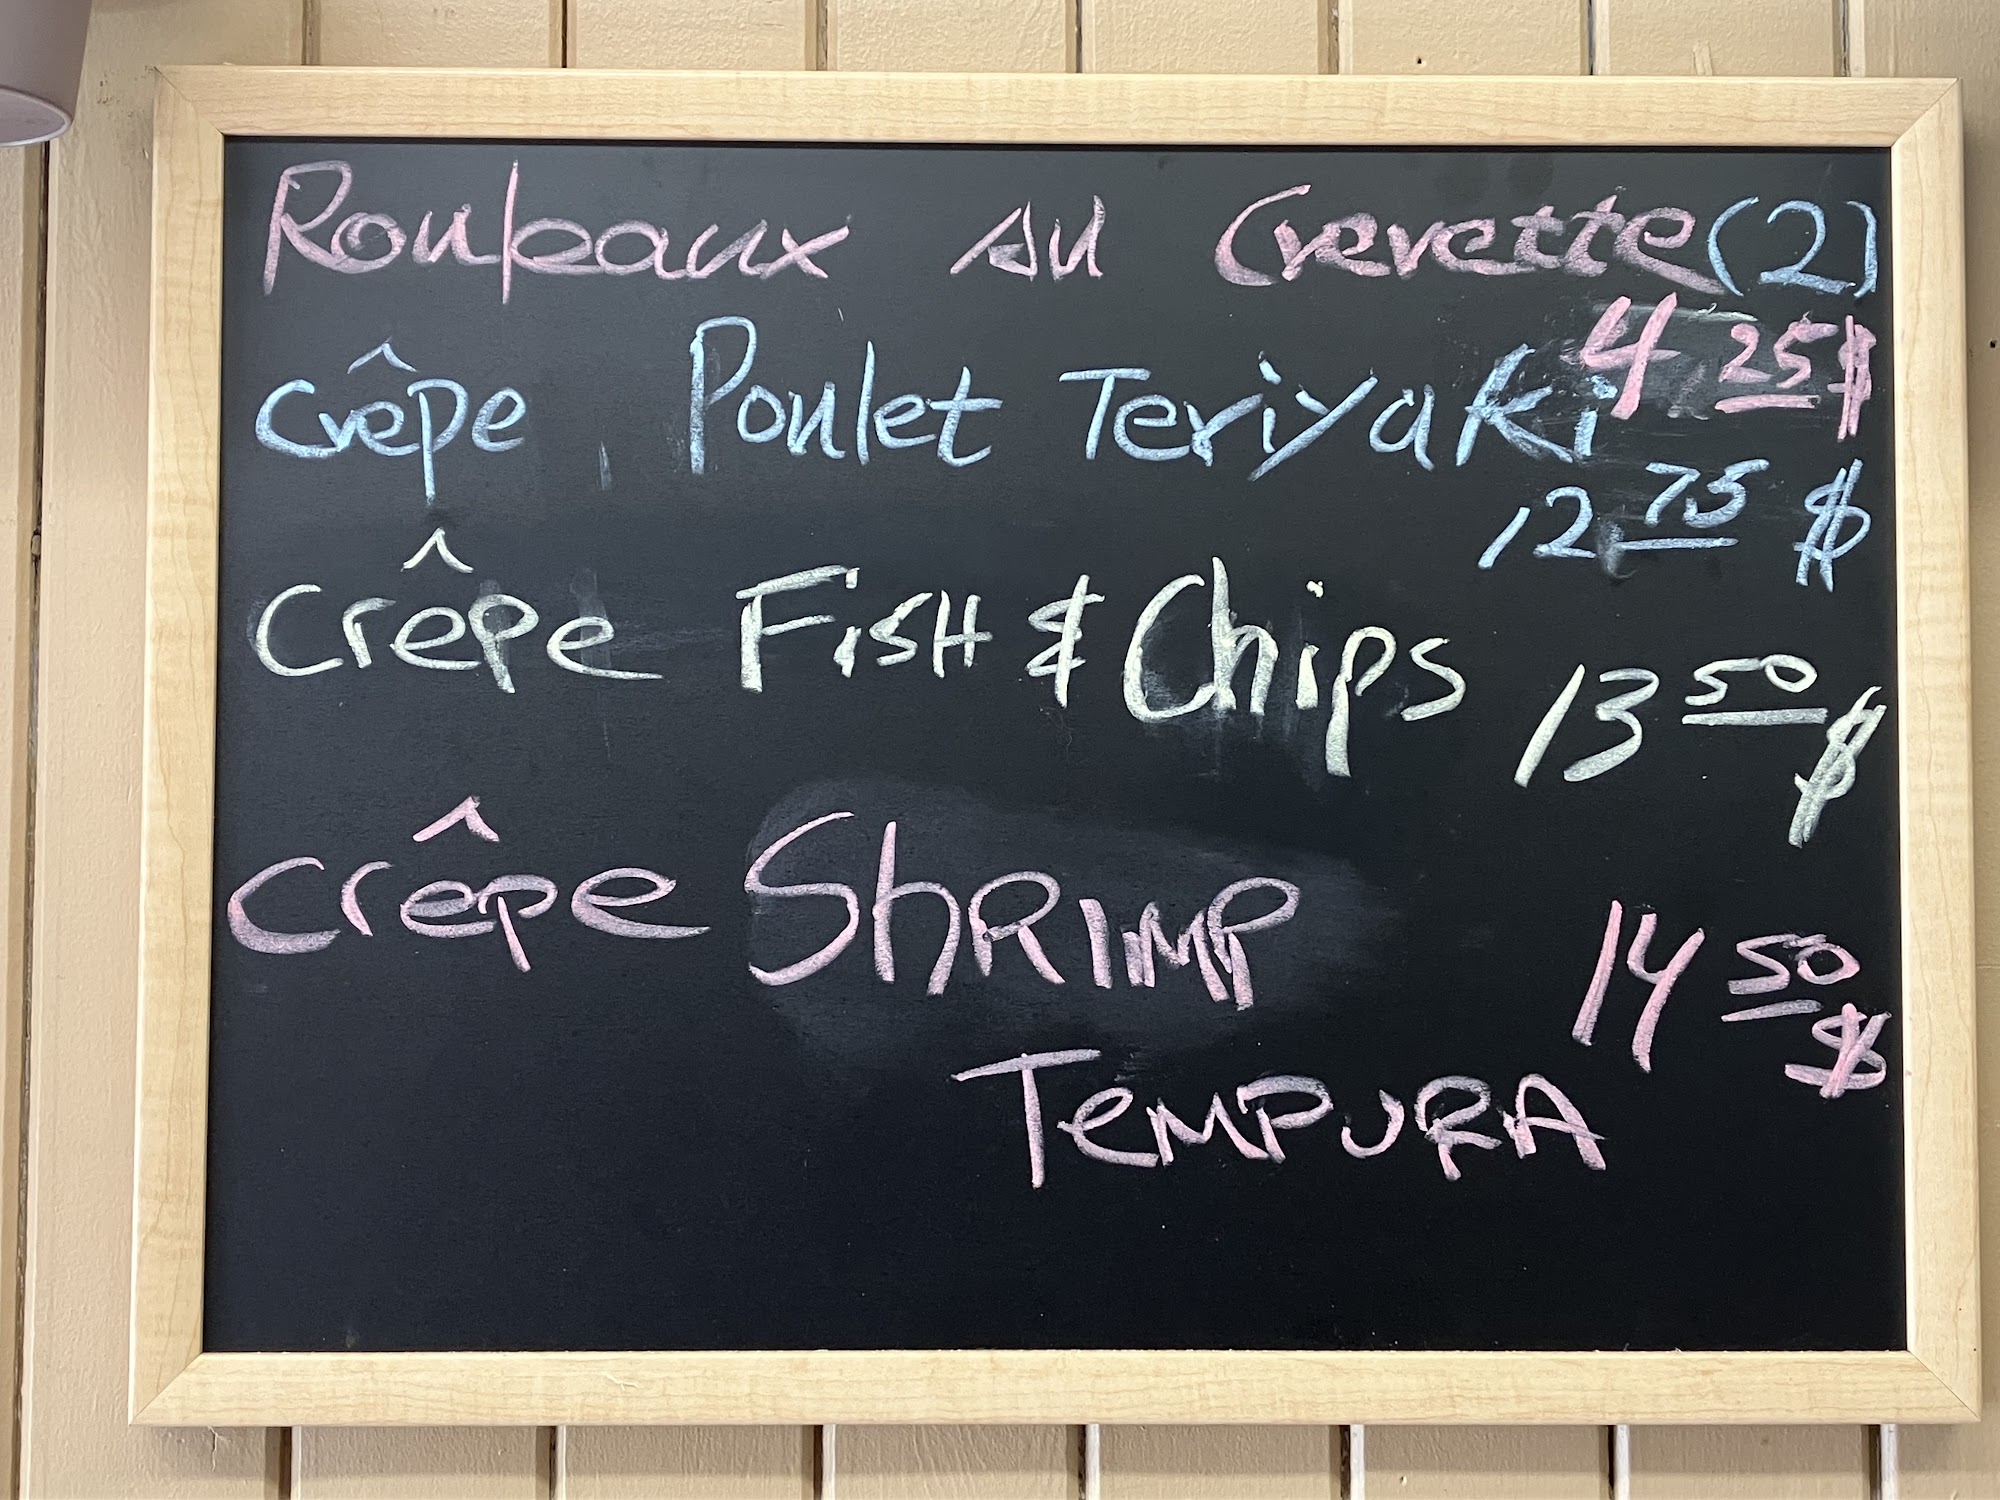 Rouleaux au Crevette (2)
4 25 $
Crêpe Poulet Teriyaki
12 75 $
Crêpe FisH & Chips 13 50 $
Crêpe ShRIMP 14 50 $
TeMPURA